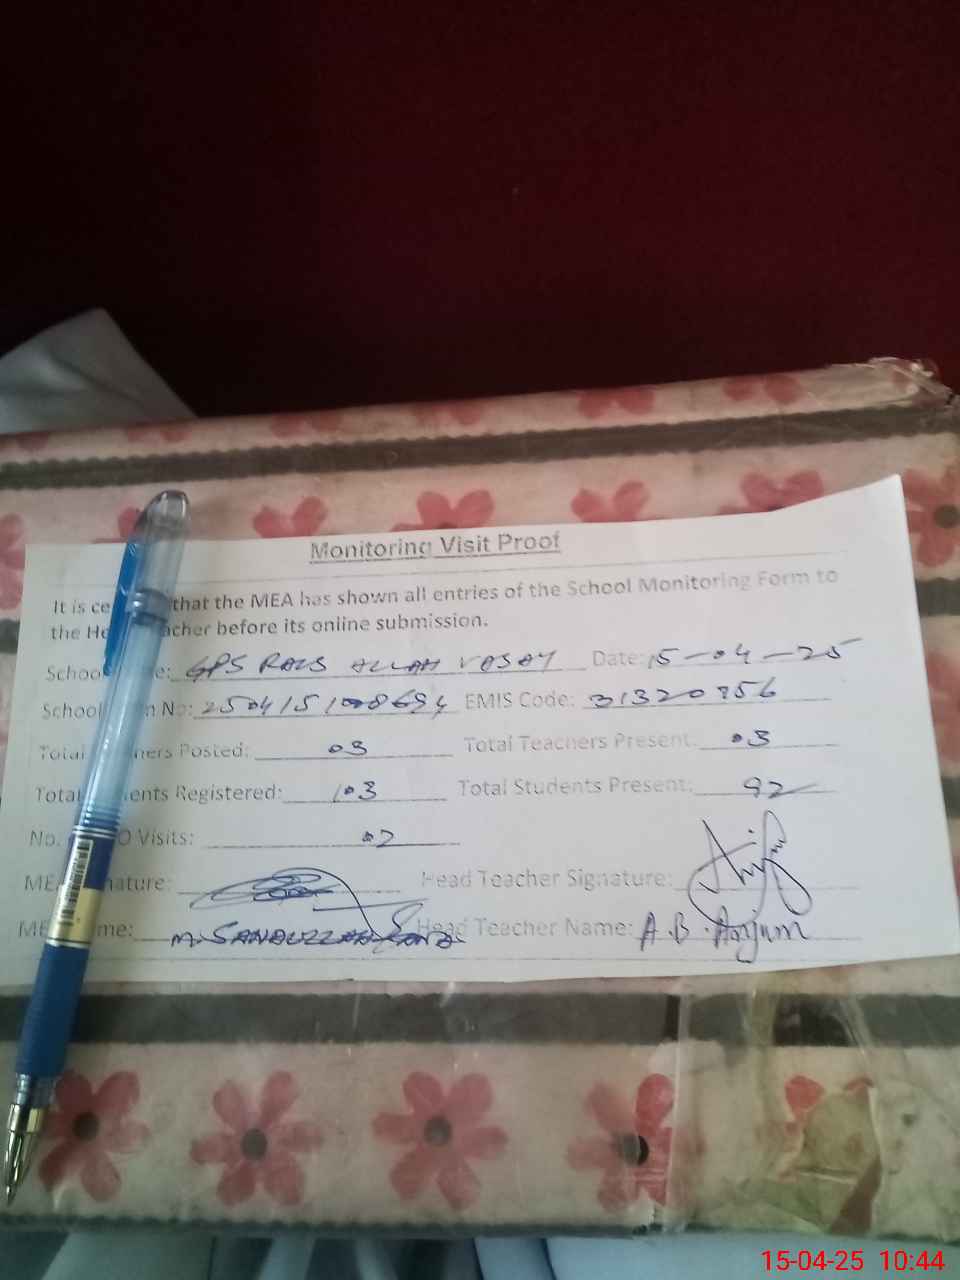 Monitoring Visit Proof
It is ce that the MEA has shown all entries of the School Monitoring Form to
the He acher before its online submission.
School e: GPS RAIS ALLAH VASAY Date: 15-04-25
School n No: EMIS Code: 31320856
Total ners Posted: 03 Total Teachers Present: 03
Total ents Registered: 103 Total Students Present: 92
No. O Visits: 02
MEA nature: Head Teacher Signature:
ME me: M. SANAULLAH Head Teacher Name: A.B. Anjum
15-04-25 10:44